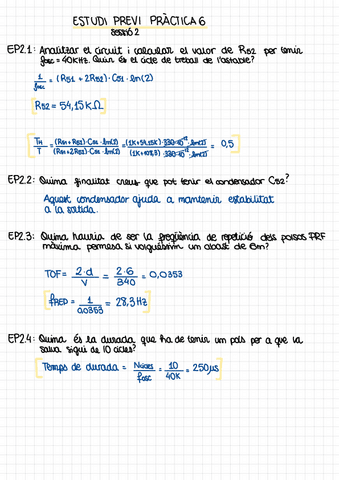 ESTUDI PREVI PRÀCTICA 6
SESSIÓ 2
EP2.1: Analitzar el circuit i calcular el valor de R52 per tenir
fosc = 40KHz. Quin és el cicle de treball de l'astable?
1/fosc = (R51 + 2R52) · C51 · ln(2)
R52 = 54,15 KΩ
TH/T = (R51+R52)·C51·ln(2)/(R51+2R52)·C51·ln(2) = = 0,5
EP2.2: Quina finalitat creus que pot tenir el condensador C52?
Aquest condensador ajuda a mantenir estabilitat
a la sortida.
EP2.3: Quina hauria de ser la freqüència de repetició dels polsos PRF
màxima permesa si volguéssim un abast de 6m?
TOF = 2·d/V = 2·6/340 = 0,0353
fRED = 1/0,0353 = 28,3 Hz
EP2.4: Quina és la durada que ha de tenir un pols per a que la
seva sigui de 10 cicles?
Temps de durada = Ncicles/fosc = 10/40K = 250μs